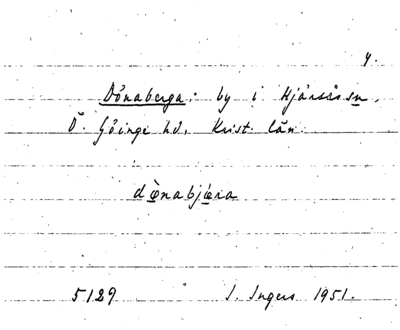 y.
Dönaberga: by i Hjärsås sn,
Ö. Göinge hd, Krist. län
dœ̀nabjǽra
5129 I. Ingers 1951.